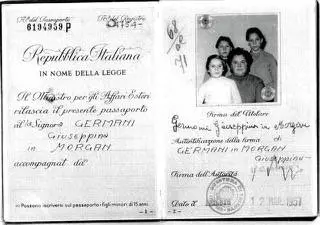 N.° del Passaporto
6194959 P
N.° del Registro
Repubblica Italiana
IN NOME DELLA LEGGE
Il Ministro per gli Affari Esteri
rilascia il presente passaporto
al/la Signora GERMANI
Giuseppina
in MORGAN
accompagnat da
(1) Possono iscriversi sul passaporto i figli minori di 15 anni
- 1 -
Firma del Titolare
Germani Giuseppina in Morgan
Autenticazione della firma di
GERMANI in MORGAN
Giuseppina
Firma dell'Autorità
Data il 12 MAR. 1957
- 2 -